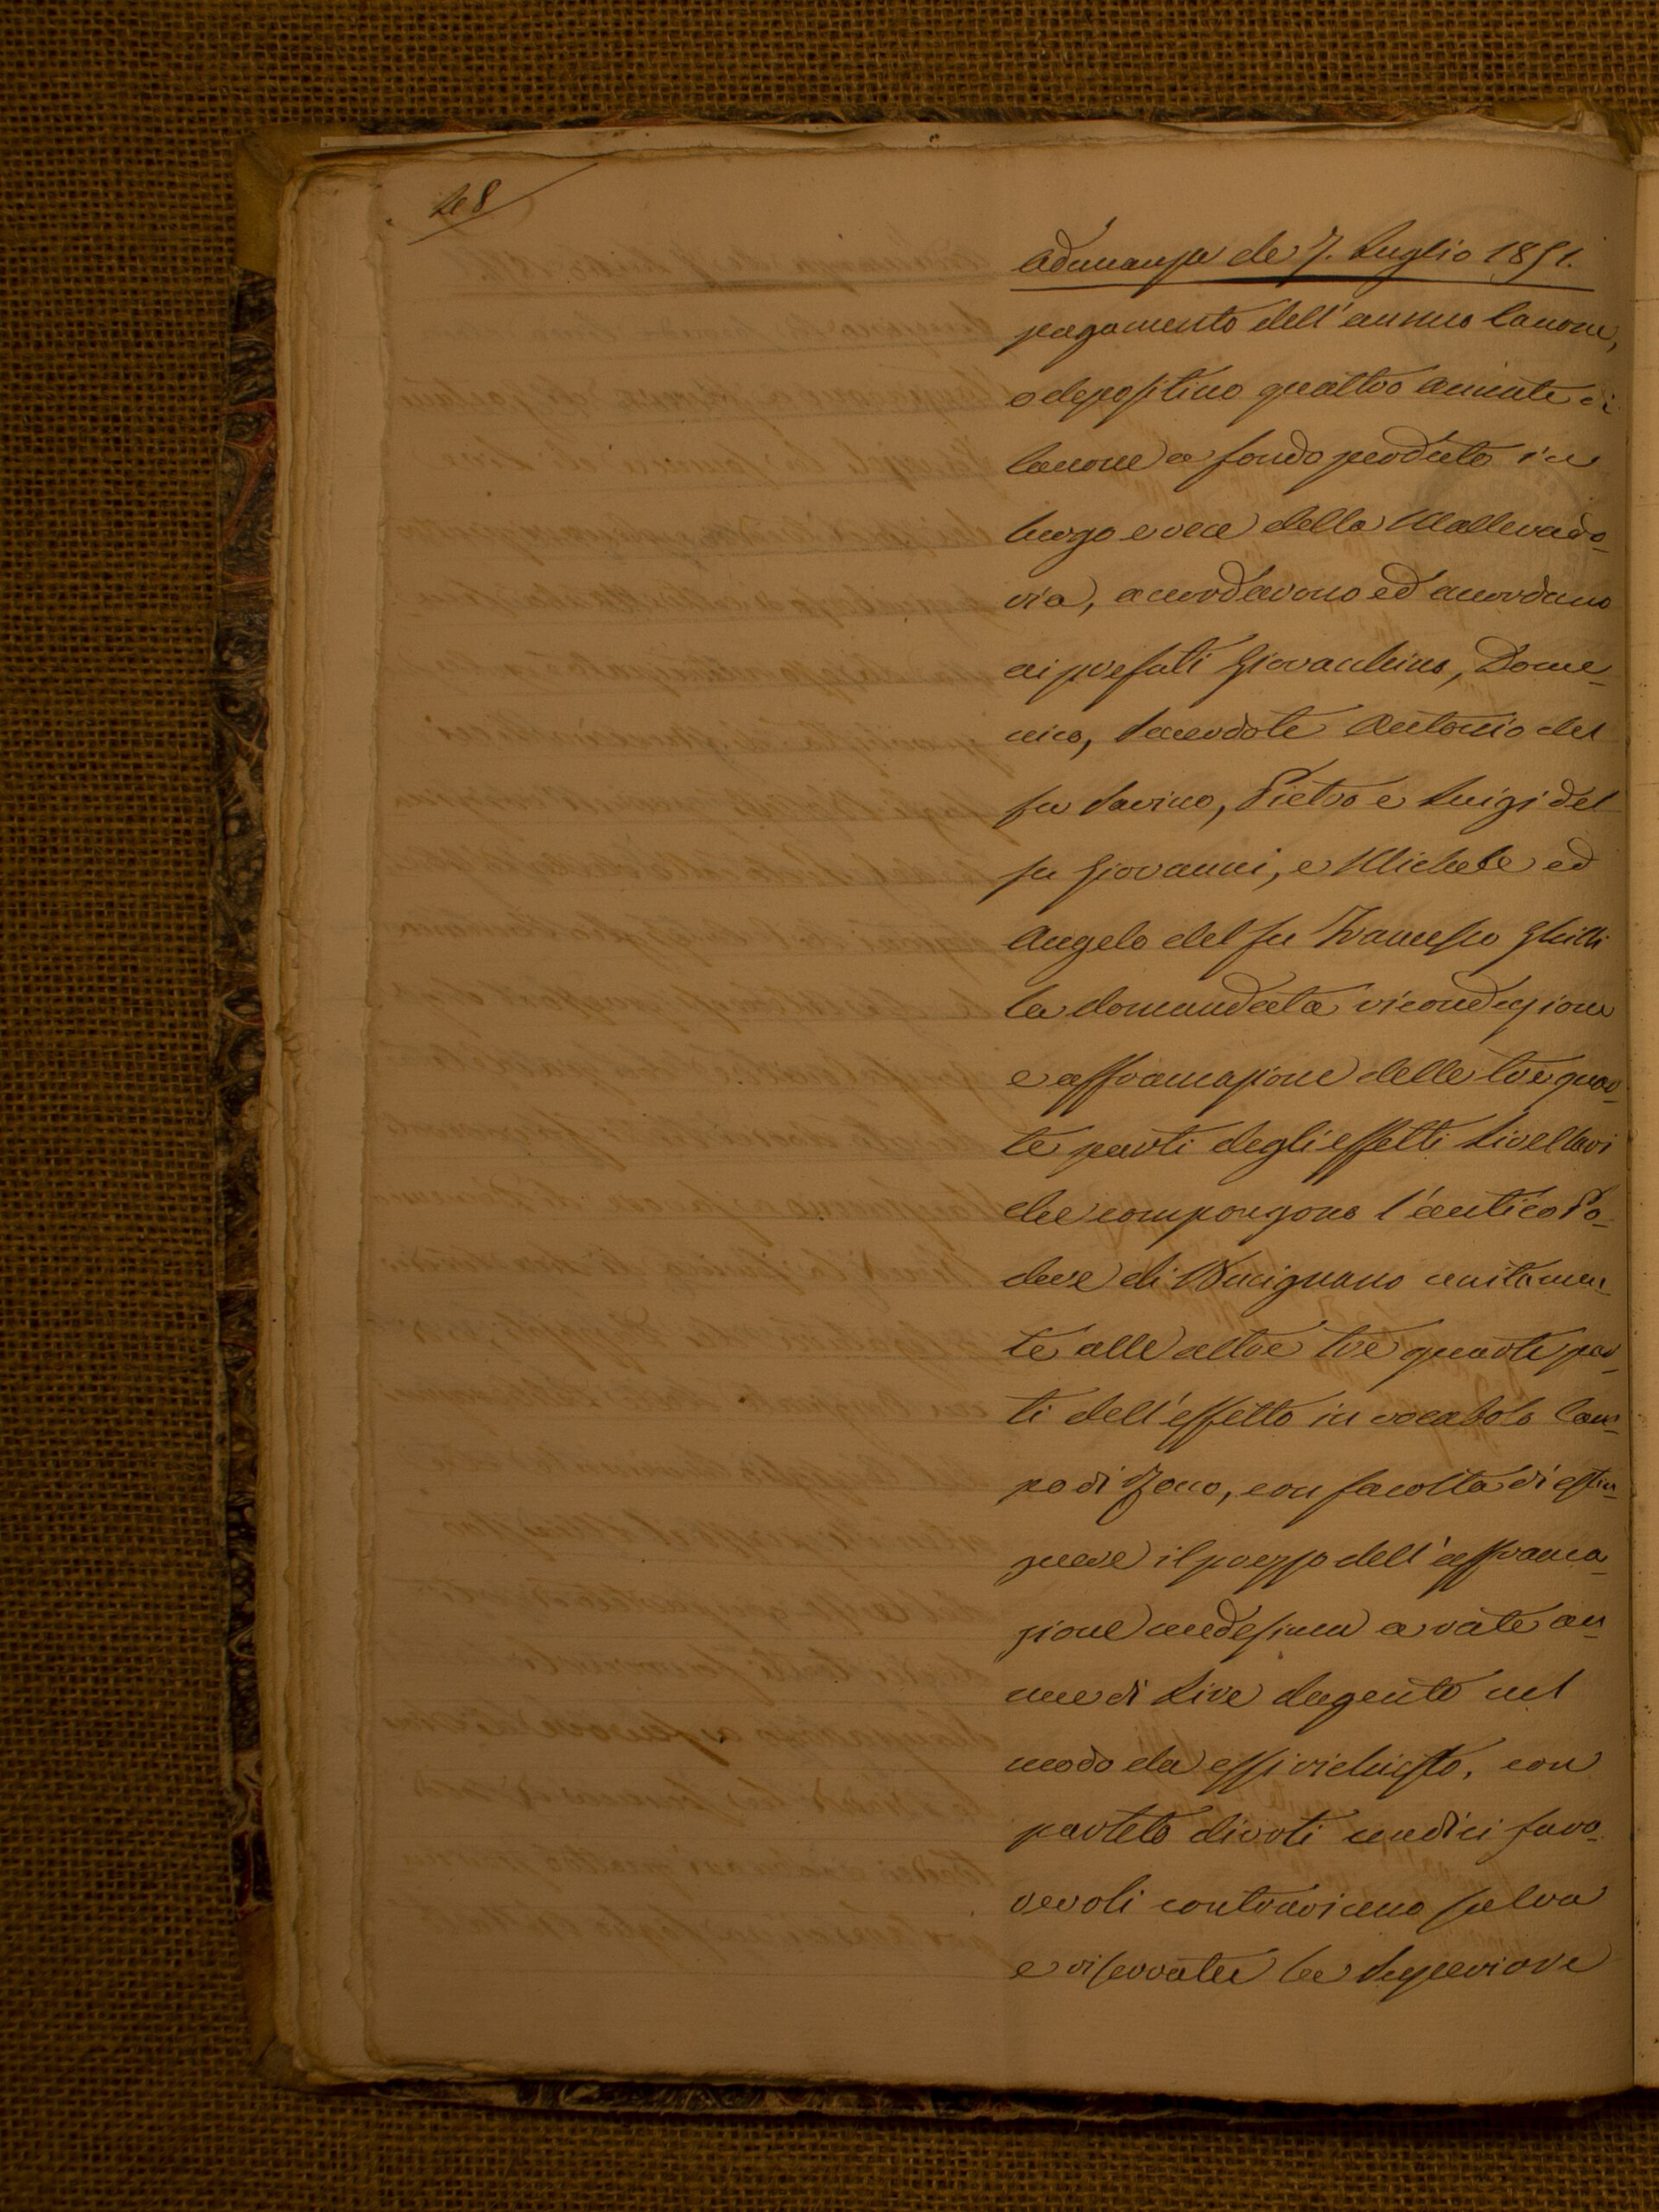 168
Adunanza de 7. Luglio 1851.
pagamento dell'annuo Canone,
o depositino quattro annate di
Canone a fondo perduto in
luogo e vece della Mallevado-
ria, accordarono ed accordano
ai prefati Giovacchino, Dome-
nico, Sacerdote Antonio del
fu Savino, Pietro e Luigi del
fu Giovanni, e Michele ed
Angelo del fu Francesco Ghilli
la domandata riconduzione
e affrancazione delle tre quar-
te parti degli effetti Livellari
che compongono l'antico Po-
dere di Bucignano unitamen-
te alle altre tre quarte par-
ti dell'effetto in vocabolo Cam-
po di Zeno, con facoltà di estin-
guere il prezzo dell'affranca-
zione medesima a rate an-
nue di Lire dugento nel
modo da essi richiesto, con
partito di voti undici favo-
revoli contrari uno salva
e riservata la Superiore